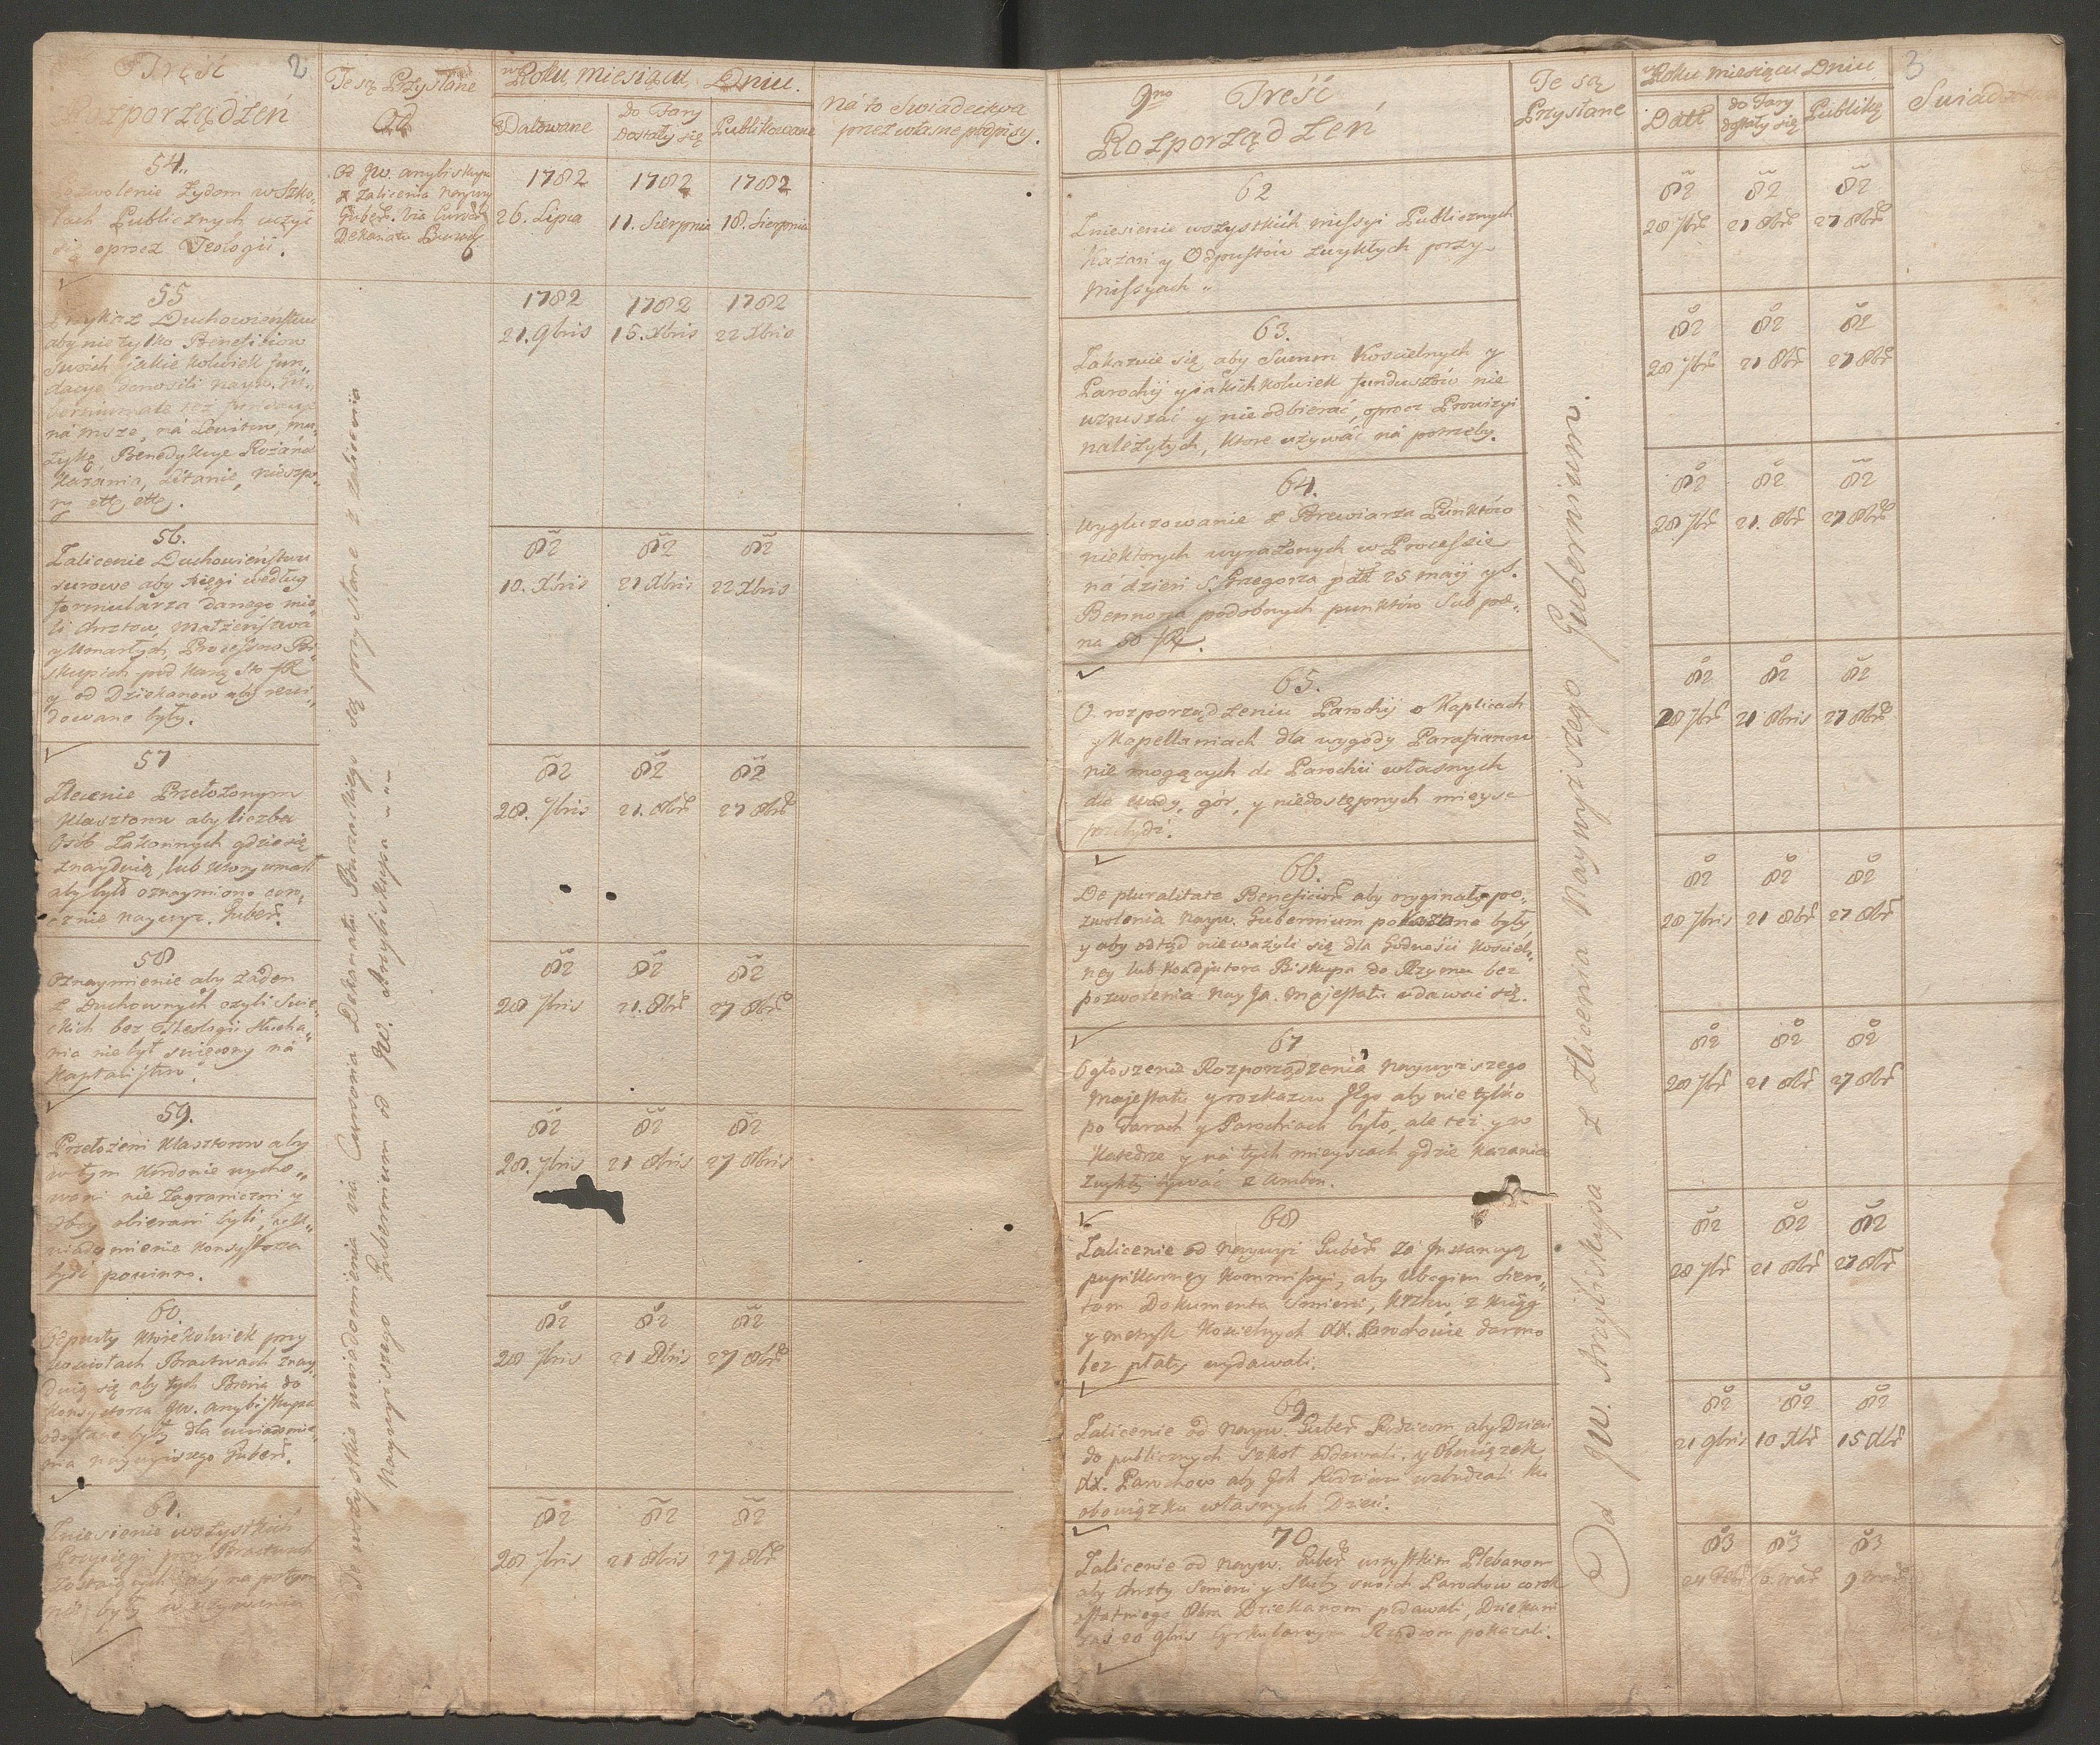 Treść
Rozporządzeń
2
Te są Przysłane
Od
w Roku, miesiącu, Dniu.
Datowane
do Fary
dostały się
Publikowane
ná to Swiadectwa
przez własne podpisy.
54.
Pozwolenie Zydom w Szko-
łach Publicznych uczyć
się oprocz Teologii.
Od JW. Arcybiskupa
z zalicenia naywyz
Guber. via
Dekanatu
1782
26. Lipca
1782
11. Sierpnia
1782
18. Sierpnia
55
Duchowieństwu
aby nie tylko Beneficiow
swoich jakie kolwiek fun„
dacye donosili nayw. Gu„
też fundacye
ná msze, ná mu„
zykę, Benedykcye Rożańca
Kazania, Litanie, nieszpo„
ry ettc ettc.
1782
21. 9bris
1782
15. Xbris
1782
22 Xbris
56.
Zalicenie Duchowieństwu
surowe aby xięgi według
formularza danego mie„
li chrztow, małżeństwa
y umarłych, Processow Bi„
skupich pod karą
y od Dziekanow aby rewi„
dowane były.
82
10. Xbris
82
21 Xbris
82
22 Xbris
57
Zlecenie Przełożonym
Klasztoru aby liczba
Osób Zakonnych gdzie się
znayduią, lub ktory umarł
aby było oznaymiono coro„
cznie naywyz. Guber.
82
28. 7bris
82
21. 8br
82
27 8br
58
Oznaymienie aby żaden
z Duchownych czyli Swie„
ckich bez Theologii słucha„
nia nie był swięcony ná
Kapłaństwo.
82
28 7bris
82
21. 8br
82
27 8br
59.
Przełożeni Klasztoru aby
w tym Kordonie wycho„
wani nie zagraniczni y
obcy obierani byli,
uwiadomienie Konsystorza
bydź powinno.
82
28. 7bris
82
21 8bris
82
27 8bris
60.
Odpusty ktorekolwiek przy
kosciołach Bractwach znay„
duią się aby tych Brevia do
Konsystorza JW. Arcybiskupa
odesłane były dla uwiadomie„
nia naywyższego Guber.
82
28 7bris
82
21 8bris
82
27 8br
61.
Zniesienie wszystkich
Przysięgi przy Bractwach
zostaiących, aby na potym
nie były w używaniu
82
28 7bris
82
21 8bris
82
27 8br
Te wszystkie uwiadomienia via Cursoria Dekanatu są przysłane z zalicenia
Naywyższego Gubernium od JW. Arcybiskupa
3
Treść
Rozporządzeń
Te są
Przysłane
w Roku miesiącu Dniu
Datt
do Fary
dostały się
Publikę
Swiadectwa
62
Zniesienie wszystkich missyi Publicznych
Kazań y Odpustów zwykłych przy
Missyach
82
28 7br
82
21 8br
82
27 8br
63.
Zakazuie się aby Summ Koscielnych y
Parochij y jakichkolwiek funduszów nie
wzruszać y nie odbierać, oprocz Prowizyi
należytych, ktore używać ná potrzeby.
82
28 7br
82
21 8br
82
27 8br
64.
Wygluzowanie z Brewiarza Punktów
niektorych wyrażonych w Processie
na dzień S. Grzegorza 25 maij y S.
Bennona podobnych punktów sub poe„
na 50
82
28 7br
82
21. 8br
82
27 8br
65.
O rozporządzeniu Parochij o Kaplicach
y Kapellaniach dla wygody Parafianow
nie mogących do Parochii własnych
dla wody, gór, y niedostępnych mieysc
przebydź.
82
28 7br
82
21 8bris
82
27 8br
66.
De pluralitate Beneficior aby oryginały po„
zwolenia nayw. Gubernium pokazane były
y aby odtąd nie ważyli się dla Godności Kosciel„
ney lub Koadjutora Biskupa do Rzymu bez
pozwolenia Nay Ja. Majestatu udawać się.
82
28 7bris
82
21 8br
82
27 8br
67
Ogłoszenie Rozporządzenia naywyższego
Majestatu y rozkazow JEgo aby nie tylko
po Farach y Parochiach było, ale też y w
Katedrze y ná tych mieyscach gdzie kazania
zwykły bywać z Ambon.
82
28 7br
82
21 8br
82
27 8br
68
Zalicenie od naywyż Guber za Instancyą
pupillarney Kommissyi, aby Ubogim siero„
tom Dokumenta smierci, krztu, z xiąg
y metryk Koscielnych XX. Parochowie darmo
bez płaty wydawali.
82
28 7br
82
21 8br
82
27 8br
69
Zalicenie od nayw. Guber Rodzicom, aby Dzieci
do publicznych szkoł oddawali. y Obowiązek
XX. Parochow aby Ich Rodzicow wzbudzali ku
obowiązku własnych Dzieci.
82
21 9bris
82
10 Xbr
82
15 Xbr
70
Zalicenie od nayw. Guber wszystkim Plebanom
aby chrzty smierci y sluby swoich Parochow co rok
ostatniego 8bra Dziekanom podawali, Dziekani
zaś 20 9bris Cyrkularnym Rządcom pokazali.
83
83
83
Od JW. Arcybiskupa z Zlicenia Naywyższego Gubernium.